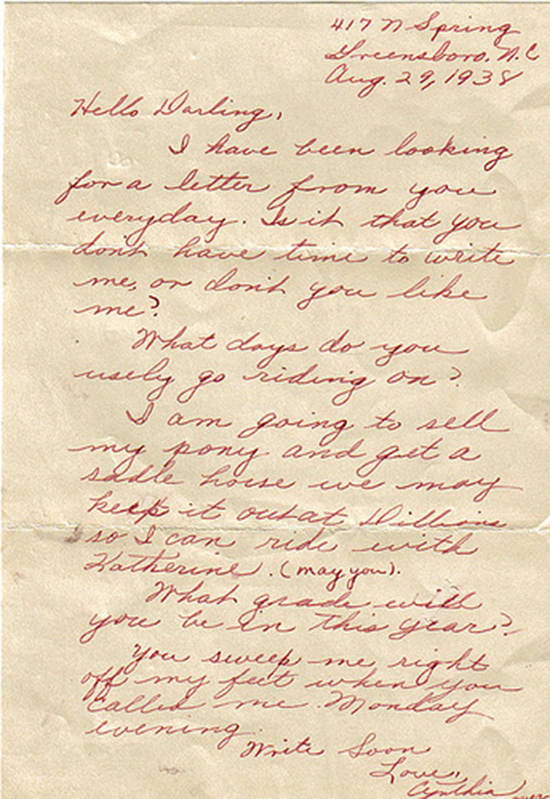 417 N Spring
Greensboro, N.C
Aug. 29, 1938
Hello Darling,
I have been looking
for a letter from you
everyday. Is it that you
don't have time to write
me, or don't you like
me?
What days do you
usely go riding on?
I am going to sell
my pony and get a
sadle horse we may
keep it out at Dillions
so I can ride with
Katherine. (may you).
What grade will
you be in this year?
You sweep me right
off my feet when you
called me Monday
evening.
Write Soon
Love,
Cynthia